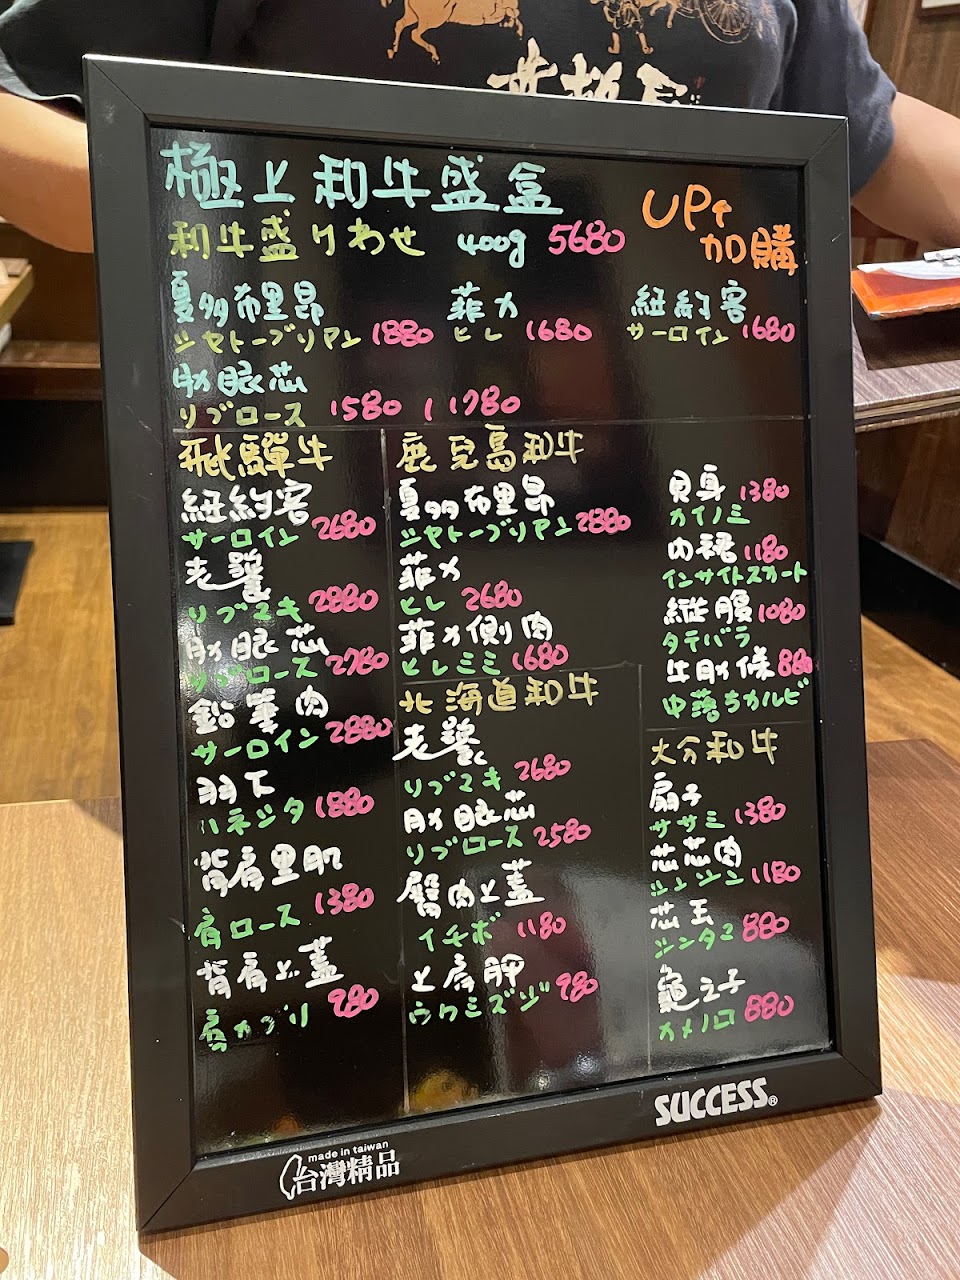 極上和牛盛盒
UP↑
加購
和牛盛りわせ 400g 5680
夏多布里昂 菲力 紐約客
シャトーブリアン 1880 ヒレ 1680 サーロイン 1680
肋眼芯
リブロース 1580 / 1780
飛驒牛
紐約客
サーロイン 2680
老饕
リブマキ 2880
肋眼芯
リブロース 2780
鉛筆肉
サーロイン 2880
羽下
ハネシタ 1880
背肩里肌
肩ロース 1380
背肩上蓋
肩カブリ 980
鹿兒島和牛
夏多布里昂
シャトーブリアン 2880
菲力
ヒレ 2680
菲力側肉
ヒレミミ 1680
貝身 1380
カイノミ
內裙 1180
インサイトスカート
縱腹 1080
タテバラ
牛肋條 880
中落ちカルビ
北海道和牛
老饕
リブマキ 2680
肋眼芯
リブロース 2580
臀肉上蓋
イチボ 1180
上肩胛
ウワミスジ 980
大分和牛
扇子
ササミ 1380
芯芯肉
シンシン 1180
芯玉
シンタマ 880
龜之子
カメノコ 880
SUCCESS®
made in taiwan
台灣精品